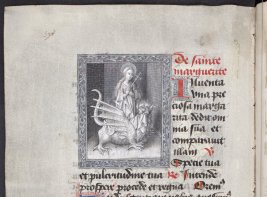 De sancte
margueritte
Inuenta
vna pre
ciosa marga
rita dedit om
nia sua et
comparauit
illam V
Specie tua
et pulcritudine tua R Intende
prospere procede et regna Orem